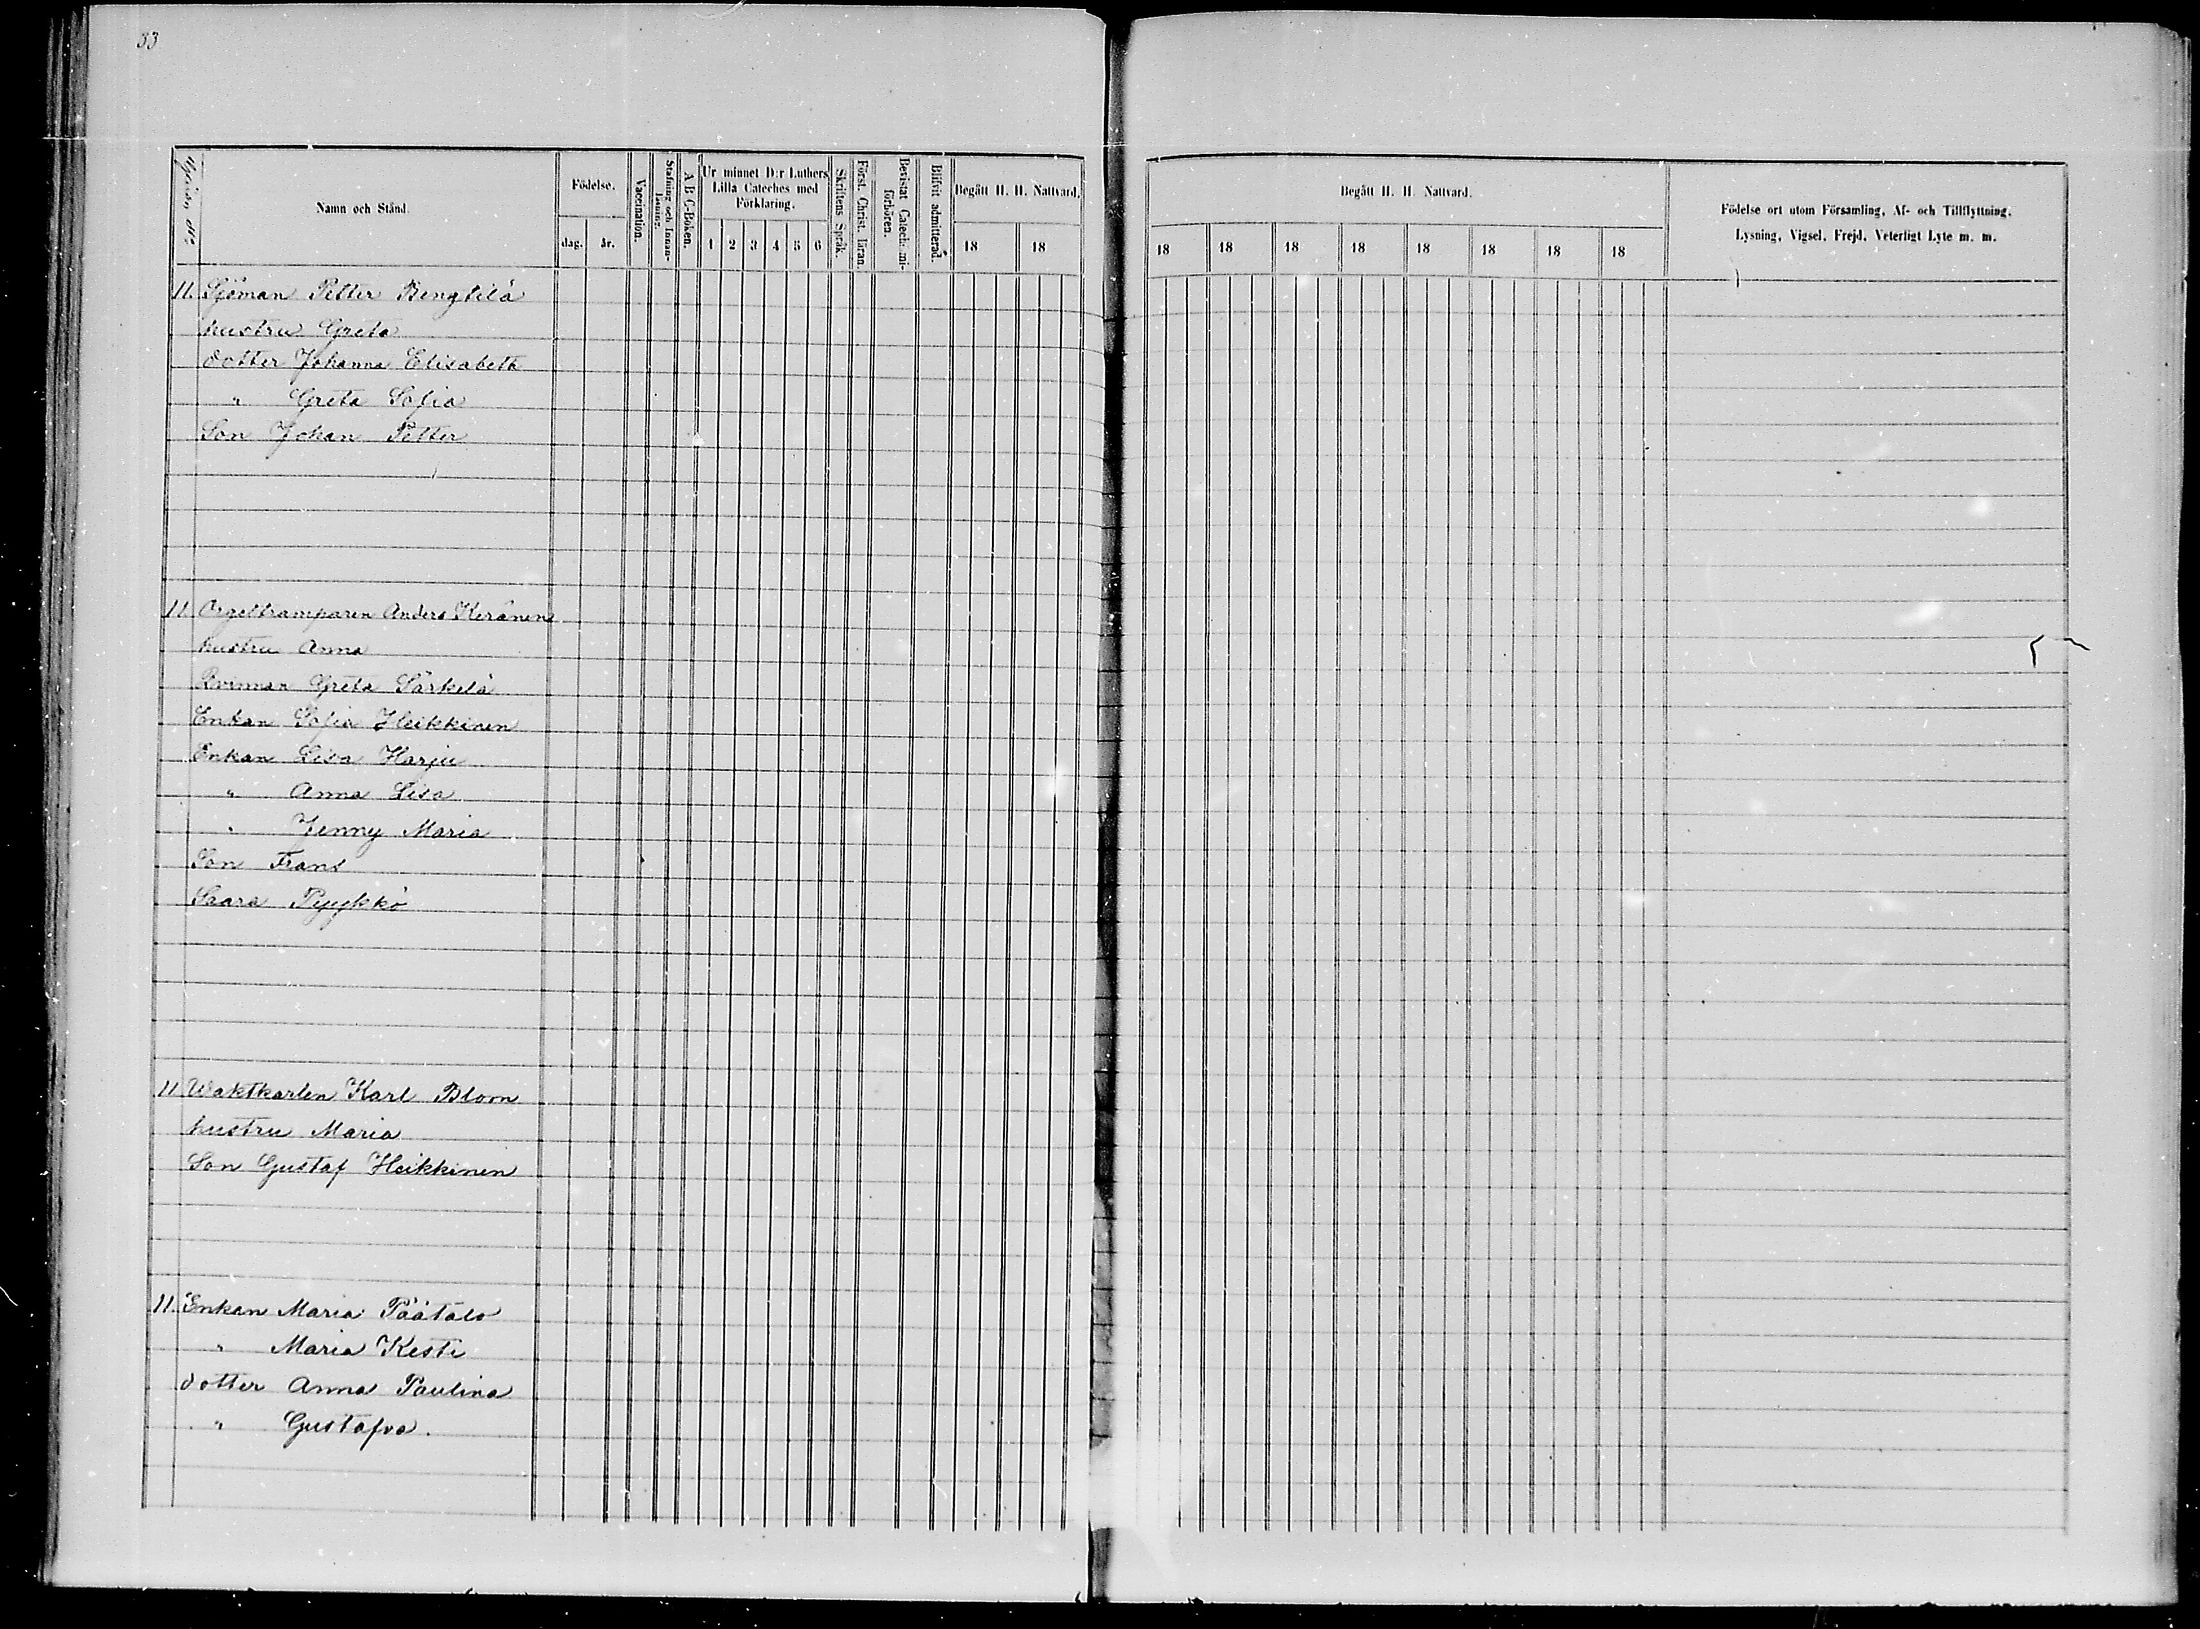 33
Namn och Stånd.
Födelse.
dag. år.
Vaccination.
Stafning och Innan-
läsning.
A B C-Boken.
Ur minnet D:r Luthers
Lilla Cateches med
Förklaring.
1 2 3 4 5 6
Skriftens Språk.
Först. Christ. läran.
Bevistat Catechismi-
förhören.
Blifvit admitterad.
Begått H. H. Nattvard.
18 18
Begått H. H. Nattvard.
18 18 18 18 18 18 18 18
Födelse ort utom Församling, Af- och Tillflyttning.
Lysning, Vigsel, Frejd, Veterligt Lyte m. m.
11. Sjöman Petter Bengtilä
hustru Greta
dotter Johanna Elisabeth
" Greta Sofia
Son Johan Petter
11. Orgeltramparen Anders Keränen
hustru Anna
Qvinnan Greta Särkelä
Enkan Sofia Heikkinen
Enkan Lisa Harju
" Anna Lisa
" Jenny Maria
Son Frans
Saara Pyykkö
11 Waktkarlen Karl Blom
hustru Maria
Son Gustaf Heikkinen
11. Enkan Maria Päätalo
" Maria Kesti
dotter Anna Paulina
" Gustafva.